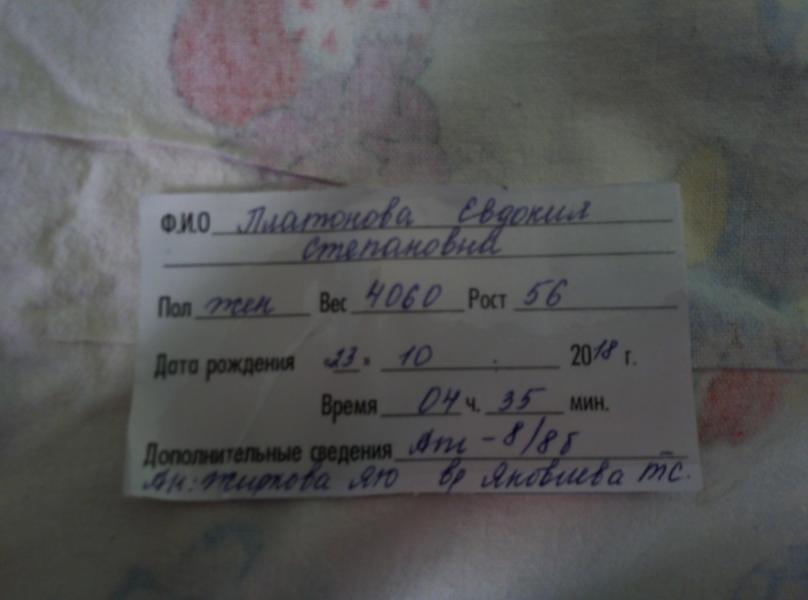 Ф.И.О Платонова Евдокия
Степановна
Пол жен Вес 4060 Рост 56
Дата рождения «23» 10 2018 г.
Время 04 ч. 35 мин.
Дополнительные сведения Апг - 8/8б
Ак: Жиркова ЯЮ вр Яковлева ТС.